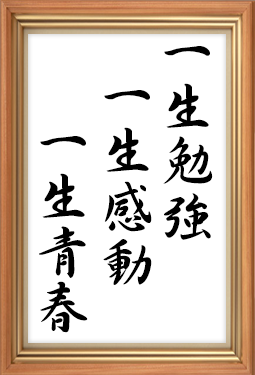 一生勉強
一生感動
一生青春